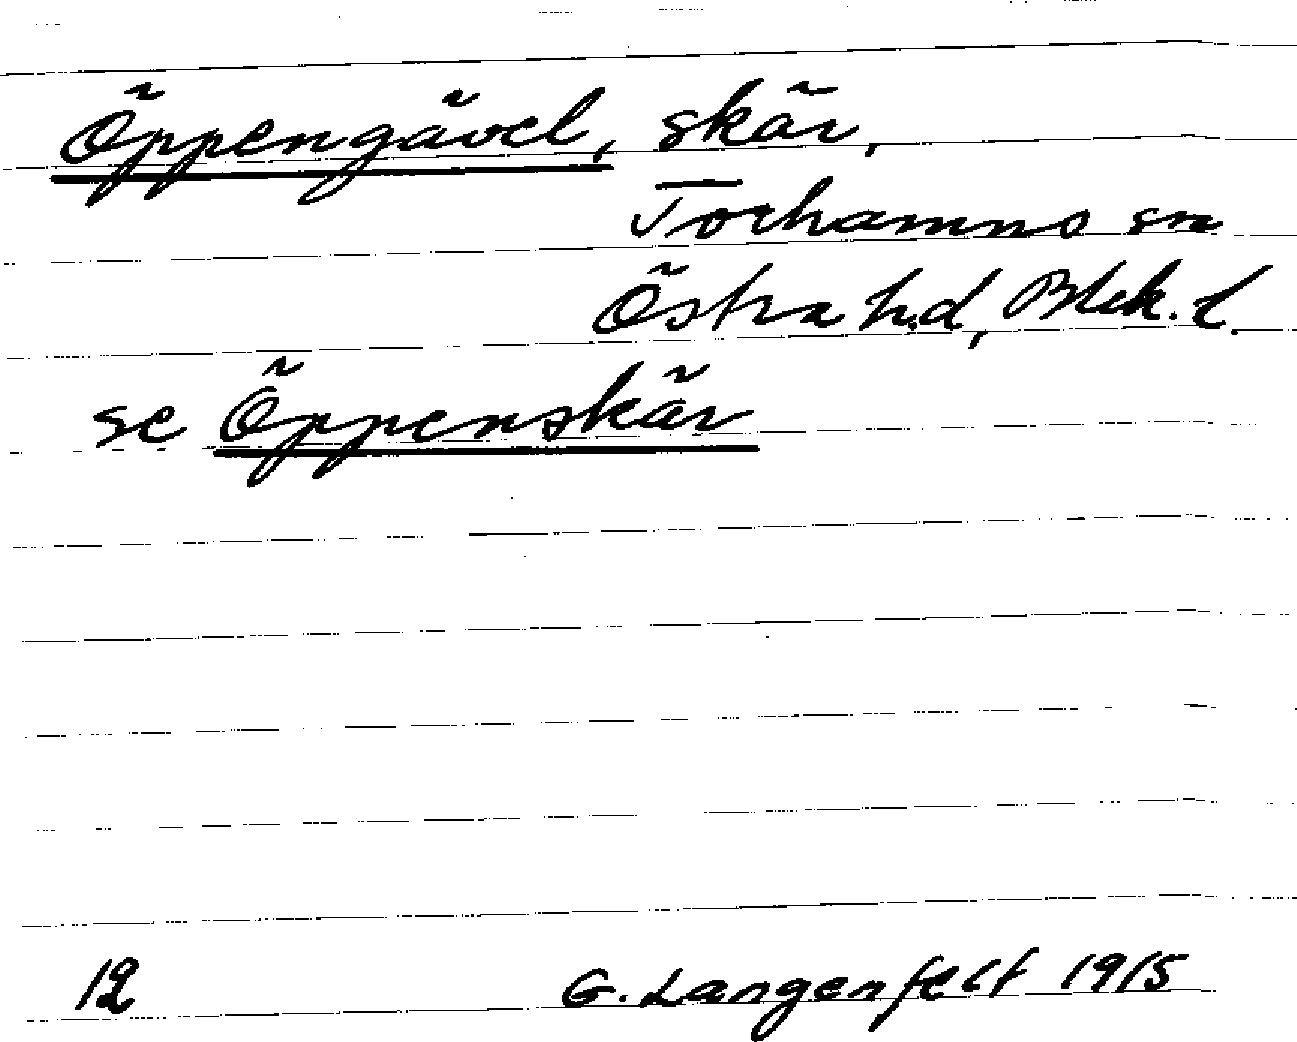 Öppengävel, skär,
Torhamns sn
Östra h.d, Blek. l.
se Öppenskär
12 G. Langenfelt 1915